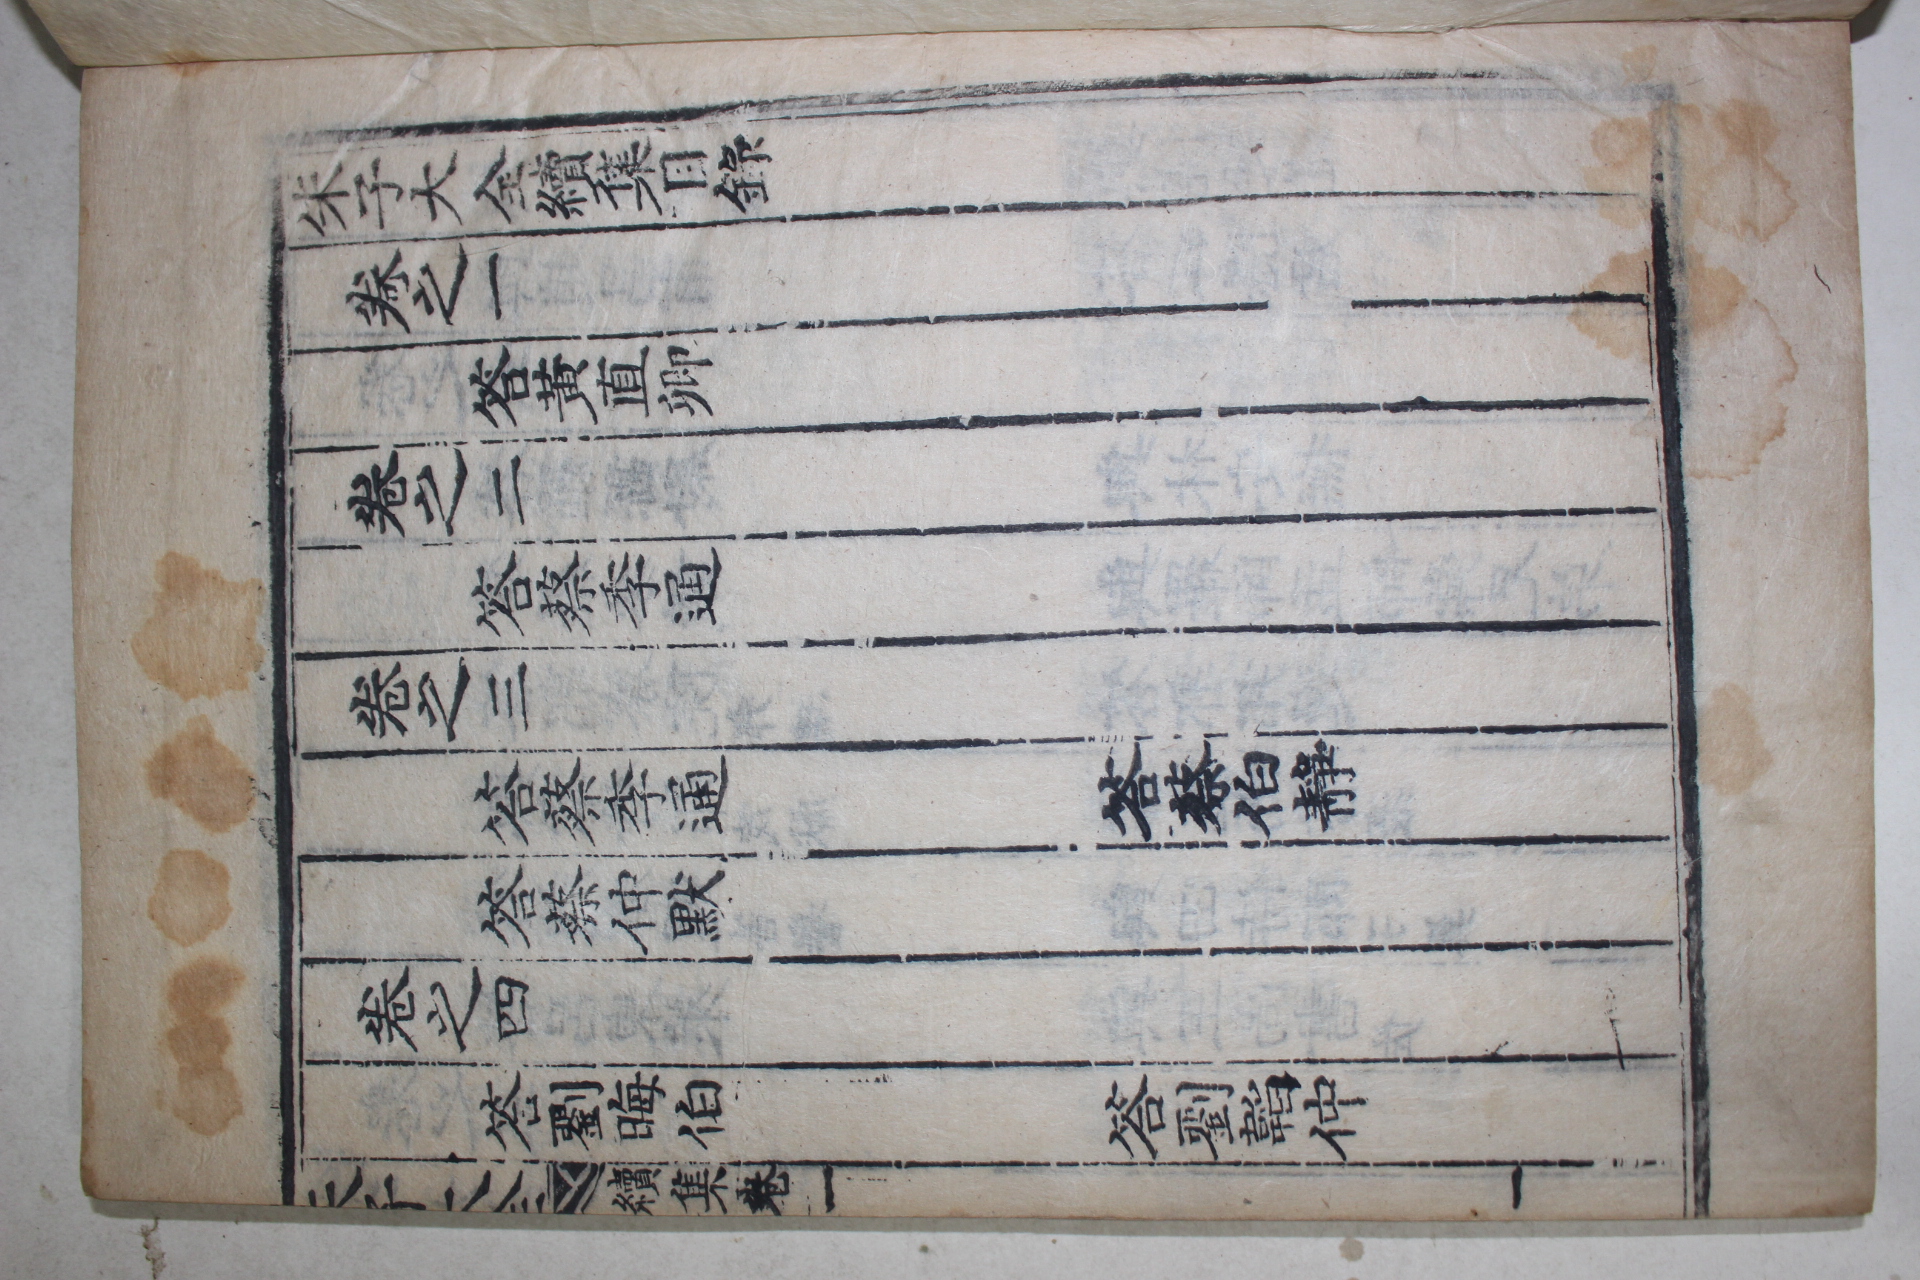 朱子大全續集目錄
卷之一
答黃直卿
卷之二
答蔡季通
卷之三
答蔡季通 答蔡伯靜
答蔡仲默
卷之四
答劉晦伯 答劉韜仲
朱子大全 續集卷一 一